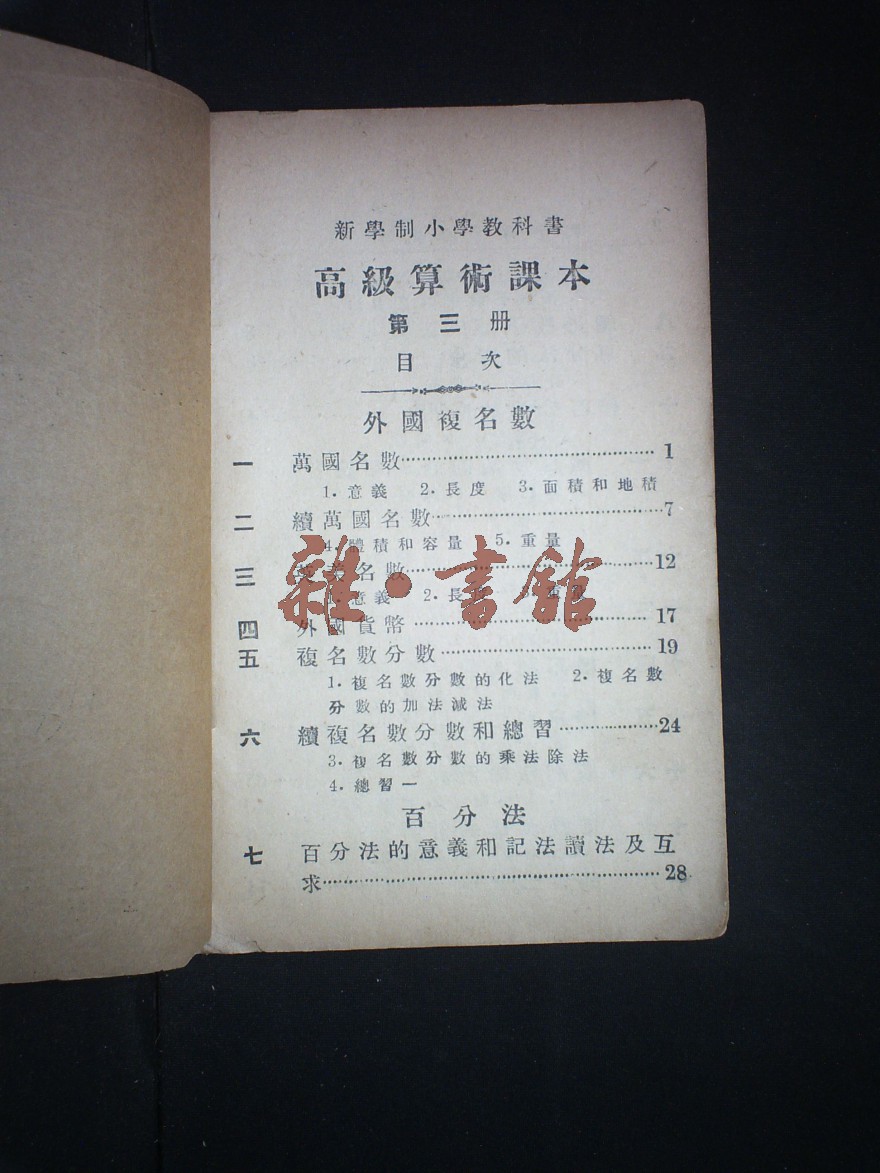 新學制小學教科書
高級算術課本
第三册
目次
外國複名數
一 萬國名數……1
1. 意義 2. 長度 3. 面積和地積
二 續萬國名數……7
4. 體積和容量 5. 重量
三 名數……12
意義 2. 長度 重量
四 外國貨幣……17
五 複名數分數……19
1. 複名數分數的化法 2. 複名數
分數的加法減法
六 續複名數分數和總習……24
3. 複名數分數的乘法除法
4. 總習一
百分法
七 百分法的意義和記法讀法及互
求……28
雜·書館